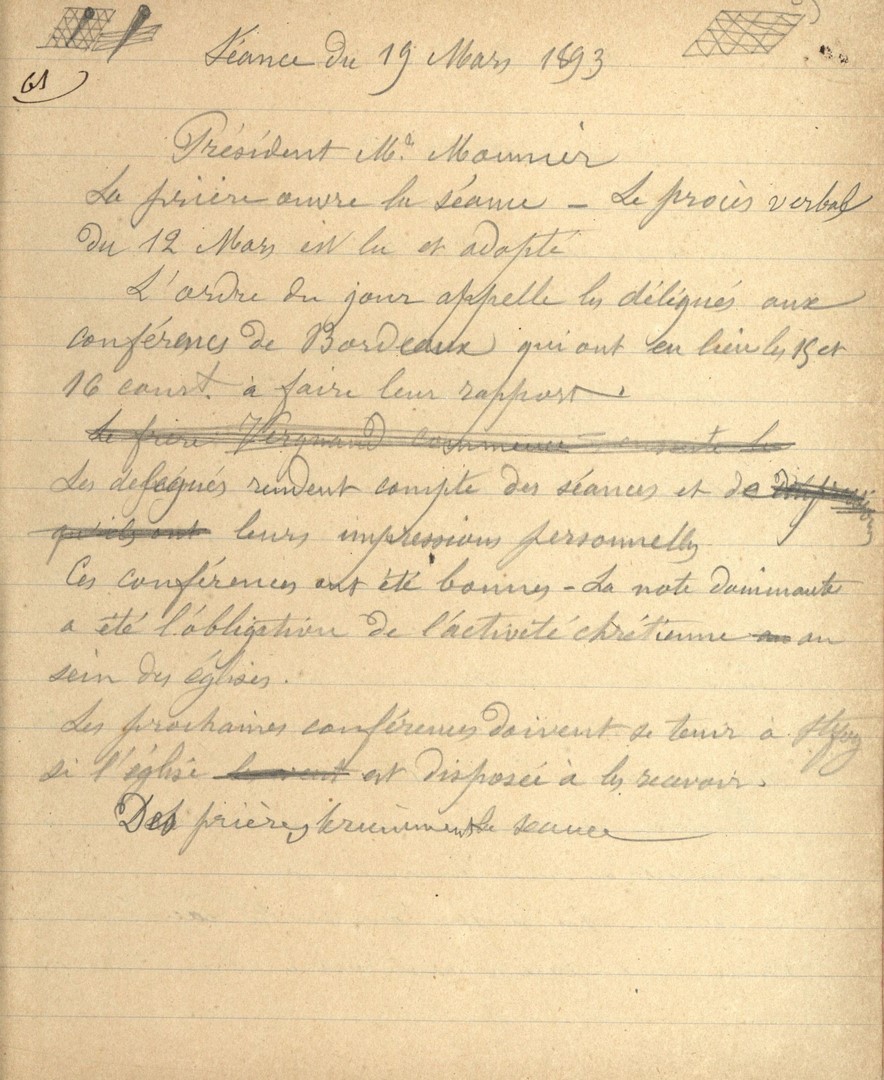 Séance du 19 Mars 1893
61
Président Mr. Mounier
La prière ouvre la séance – Le procès verbal
du 12 Mars est lu et adopté
L'ordre du jour appelle les délégués aux
conférences de Bordeaux qui ont eu lieu les 15 et
16 court. à faire leur rapport.
Le frère Vergnaud commence ensuite le
Les délégués rendent compte des séances et de
qu'ils ont leurs impressions personnelles
Ces conférences ont été bonnes – La note dominante
a été l'obligation de l'activité chrétienne au
sein des églises.
Les prochaines conférences doivent se tenir à Ste foy
si l'église est disposée à les recevoir.
Des prières terminent la séance